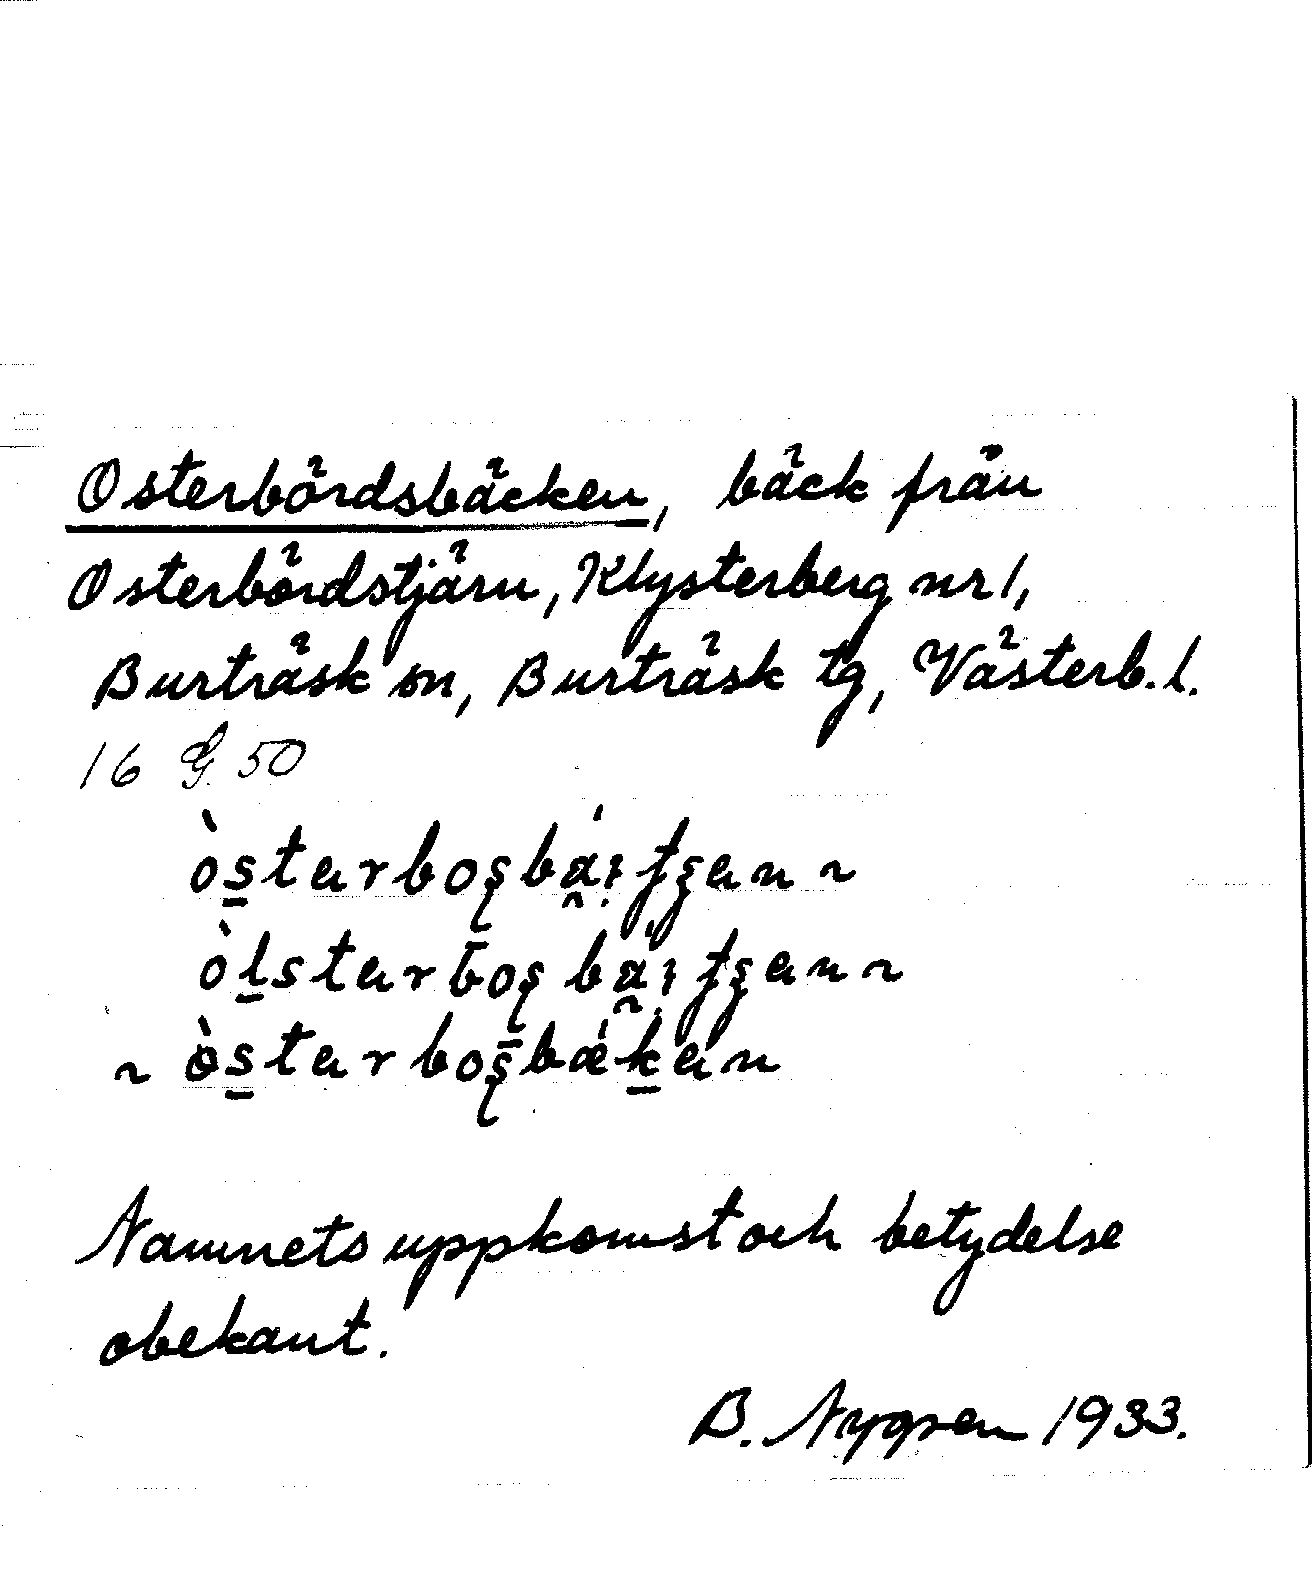 Osterbördsbäcken, bäck från
Osterbördstjärn, Klysterberg nr 1,
Burträsk sn, Burträsk tg, Västerb. l.
16 G 50
òs̲tarboʂbá̰ɪtʂan ~
òl̲starboʂbá̰ɪtʂan ~
~ òs̲tarboʂbǽk̲an
Namnets uppkomst och betydelse
obekant.
B. Nygren 1933.